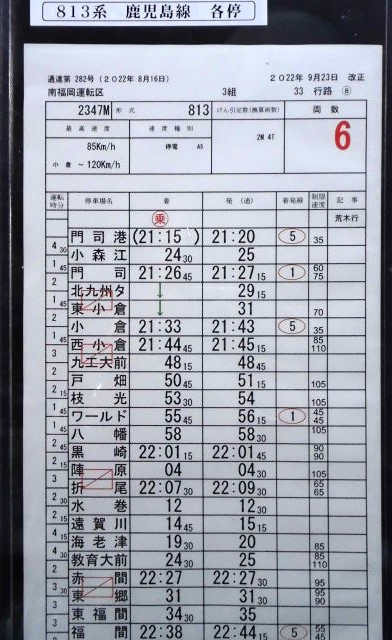 813系 鹿児島線 各停
通達第 282号 (2022年 8月16日) 2022年 9月23日 改正
南福岡運転区 3組 33 行路 ⑧
2347M 形式 813 けん引定数(換算両数) 両数
最高速度 速度種別 2M 4T 6
85Km/h 停電 A5
小倉~ 120Km/h
運転時分 停車場名 着 発(通) 着発線 制限速度 記事
乗 荒木行
門司港 (21:15) 21:20 5 35
4 30
小森江 24 30 25
2
門司 21:26 45 21:27 15 1 60 75
2
北九州タ ↓ 29 15
1 45
東小倉 ↓ 31 70
2
小倉 21:33 21:43 5 35
1 45
西小倉 21:44 45 21:45 15 85 110
3
九工大前 48 15 48 45
2
戸畑 50 45 51 15 105
2 15
枝光 53 30 54 105
1 45
ワールド 55 45 56 15 1 45 45
1 45
八幡 58 58 30 105
2 45
黒崎 22:01 15 22:01 45 90 90
陣原 04 04 30 105
3
折尾 22:07 30 22:09 30 65 65
水巻 12 12 30
2 15
遠賀川 14 45 15 15
海老津 19 30 20 85
教育大前 24 30 25 85 110
2
赤間 22:27 22:27 30 95
3 30
東郷 31 31 30 95 90
3
東福間 34 30 35
3
福間 22:38 22:44 15 5 55